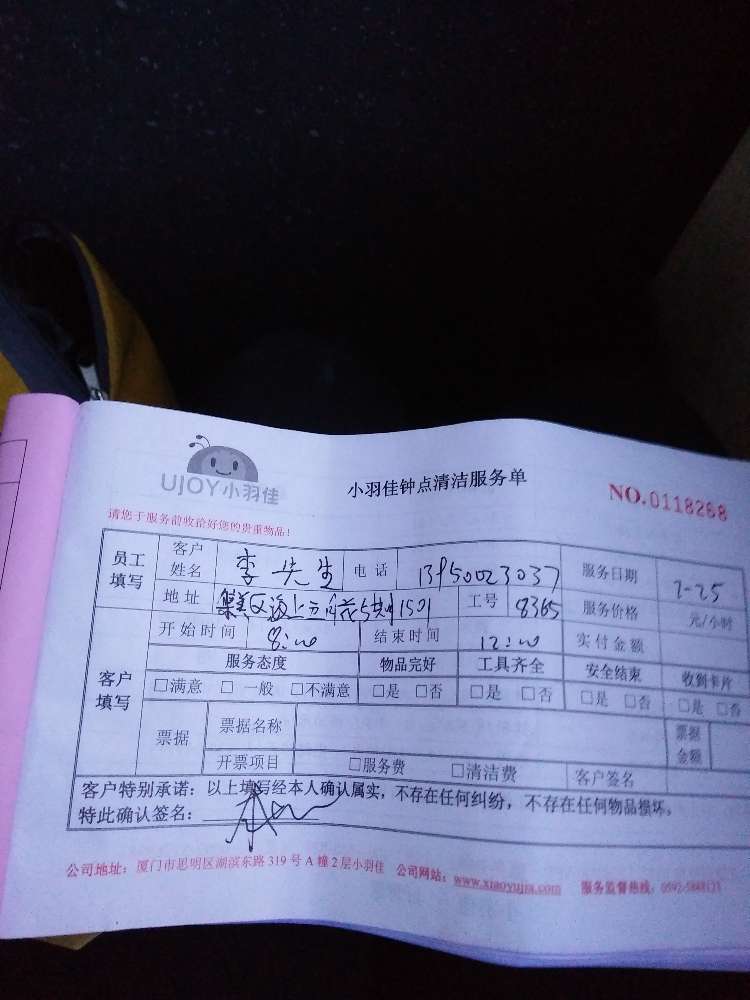 UJOY小羽佳
小羽佳钟点清洁服务单
NO.0118268
请您于服务前收洽好您的贵重物品!
员工填写 客户姓名 李先生 电话 13950023037 服务日期 2-25
地址 集美区海上 花 1501 工号 8365 服务价格 元/小时
客户填写 开始时间 8:00 结束时间 12:00 实付金额
服务态度 物品完好 工具齐全 安全结束 收到卡片
□满意 □一般 □不满意 □是 □否 □是 □否 □是 □否 □是 □否
票据 票据名称 票据金额
开票项目 □服务费 □清洁费 客户签名
客户特别承诺:以上填写经本人确认属实,不存在任何纠纷,不存在任何物品损坏。
特此确认签名:
公司地址:厦门市思明区湖滨东路 319 号 A 幢 2 层小羽佳 公司网站:www.xiaoyujia.com 服务监督热线:0592-5888123